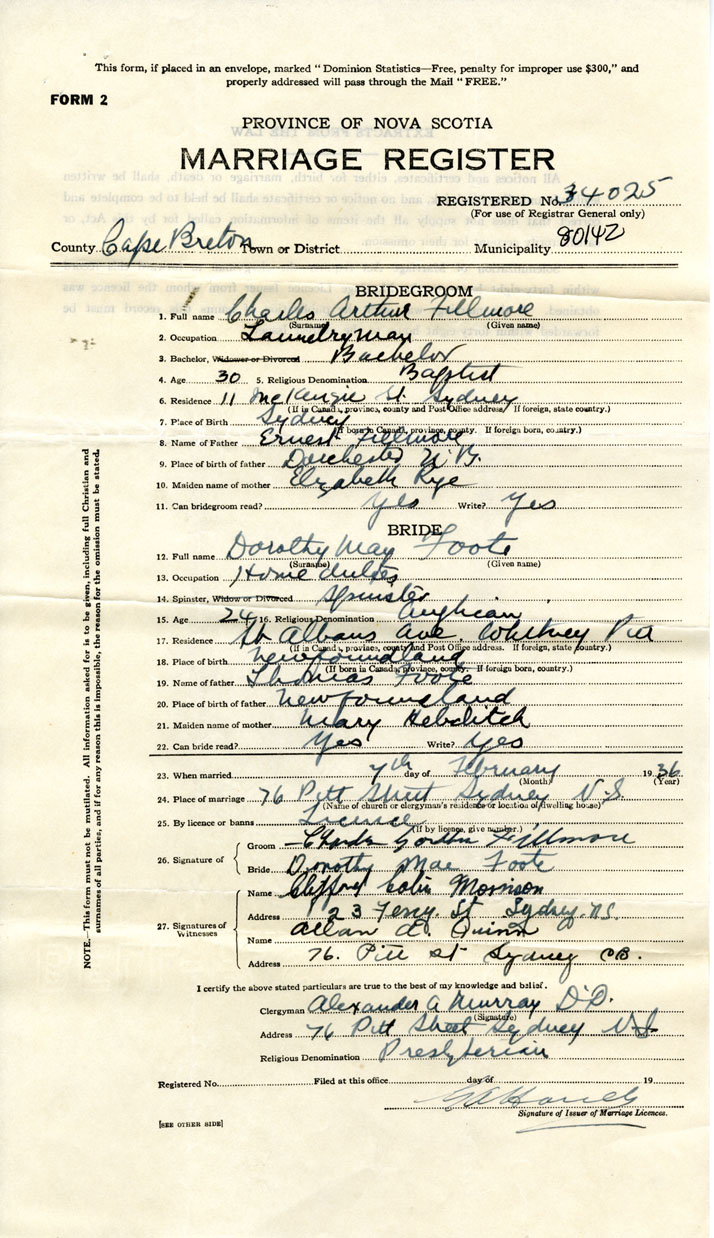 This form, if placed in an envelope, marked "Dominion Statistics—Free, penalty for improper use $300," and
properly addressed will pass through the Mail "FREE."
FORM 2
PROVINCE OF NOVA SCOTIA
MARRIAGE REGISTER
REGISTERED No. 34025
(For use of Registrar General only)
County Cape Breton Town or District Municipality 80142
BRIDEGROOM
1. Full name Charles Arthur Fillmore
(Surname) (Given name)
2. Occupation Laundryman
3. Bachelor, Widower or Divorced Bachelor
4. Age 30 5. Religious Denomination Baptist
6. Residence 11 McKenzie St. Sydney
(If in Canada, province, county and Post Office address. If foreign, state country.)
7. Place of Birth Sydney
(If born in Canada, province, county. If foreign born, country.)
8. Name of Father Ernest Fillmore
9. Place of birth of father Dorchester N.B.
10. Maiden name of mother Elizabeth Rye
11. Can bridegroom read? Yes Write? Yes
BRIDE
12. Full name Dorothy May Foote
(Surname) (Given name)
13. Occupation Home duties
14. Spinster, Widow or Divorced Spinster
15. Age 24 16. Religious Denomination Anglican
17. Residence St Albans Ave. Whitney Pier
(If in Canada, province, county and Post Office address. If foreign, state country.)
18. Place of birth Newfoundland
(If born in Canada, province, county. If foreign born, country.)
19. Name of father Thomas Foote
20. Place of birth of father Newfoundland
21. Maiden name of mother Mary Hebditch
22. Can bride read? Yes Write? Yes
23. When married 7th day of February 1936
(Month) (Year)
24. Place of marriage 76 Pitt Street Sydney N.S
(Name of church or clergyman's residence or location of dwelling house)
25. By licence or banns Licence
(If by licence, give number.)
26. Signature of
Groom Charles Fillmore
Bride Dorothy Mae Foote
27. Signatures of Witnesses
Name Clifford Colin Morrison
Address 23 Ferry. St Sydney. N.S.
Name Allan Quinn
Address 76. Pitt St Sydney CB.
I certify the above stated particulars are true to the best of my knowledge and belief.
Clergyman Alexander A Murray D.D.
(Signature)
Address 76 Pitt Street Sydney N.S
Religious Denomination Presbyterian
Registered No. Filed at this office day of 19
Signature of Issuer of Marriage Licences.
[SEE OTHER SIDE]
NOTE.—This form must not be mutilated. All information asked for is to be given, including full Christian and
surnames of all parties, and if for any reason this is impossible, the reason for the omission must be stated.